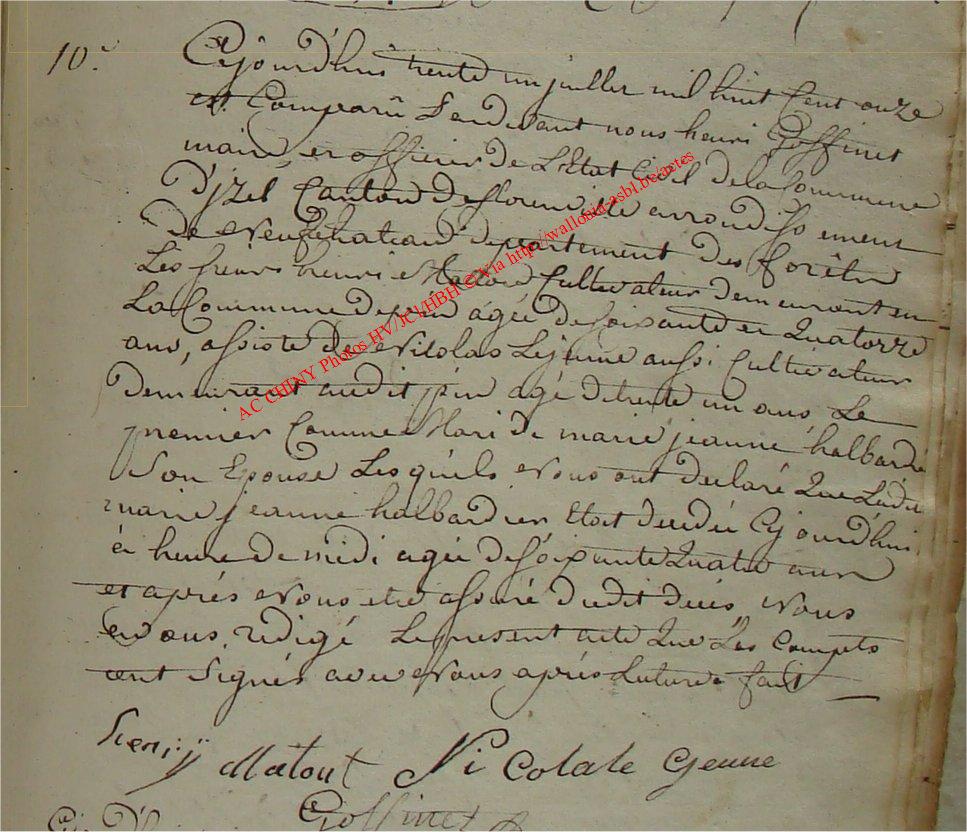 10.e
Cejourd'huis trente un juillet mil huit Cent onze
est Comparû Pendevant nous henri Goffinet
maire et officier de L'Etat Civil de la Commune
D'jzel Canton de florenville arrondissement
de Neufchateau departement des forêts
Les sieurs henri Matout Cultivateur demeurant en
La Commune de pin agée de soixante et Quatorze
ans, assisté de Nicolas Lejeune aussi Cultivateur
demeurant audit pin agé de trente un ans Le
premier Comme Mari de marie jeanne halbardié
Son Epouse Lesquels Nous ont declaré Que Ladit
marie jeanne halbardier Etoit decedée Cejourd'hui
à heure de midi agée de soixante Quatre ans
et après Nous etre assuré dudit decés, Nous
en avons redigé Le present acte Que Les Compets
ont Signés avec Nous après Lecture fait
Henrÿ Matout Nicolale Geune
Goffinet
AC CHINY Photos HV/JCl/HBH © via http://wallonia-asbl.be/actes